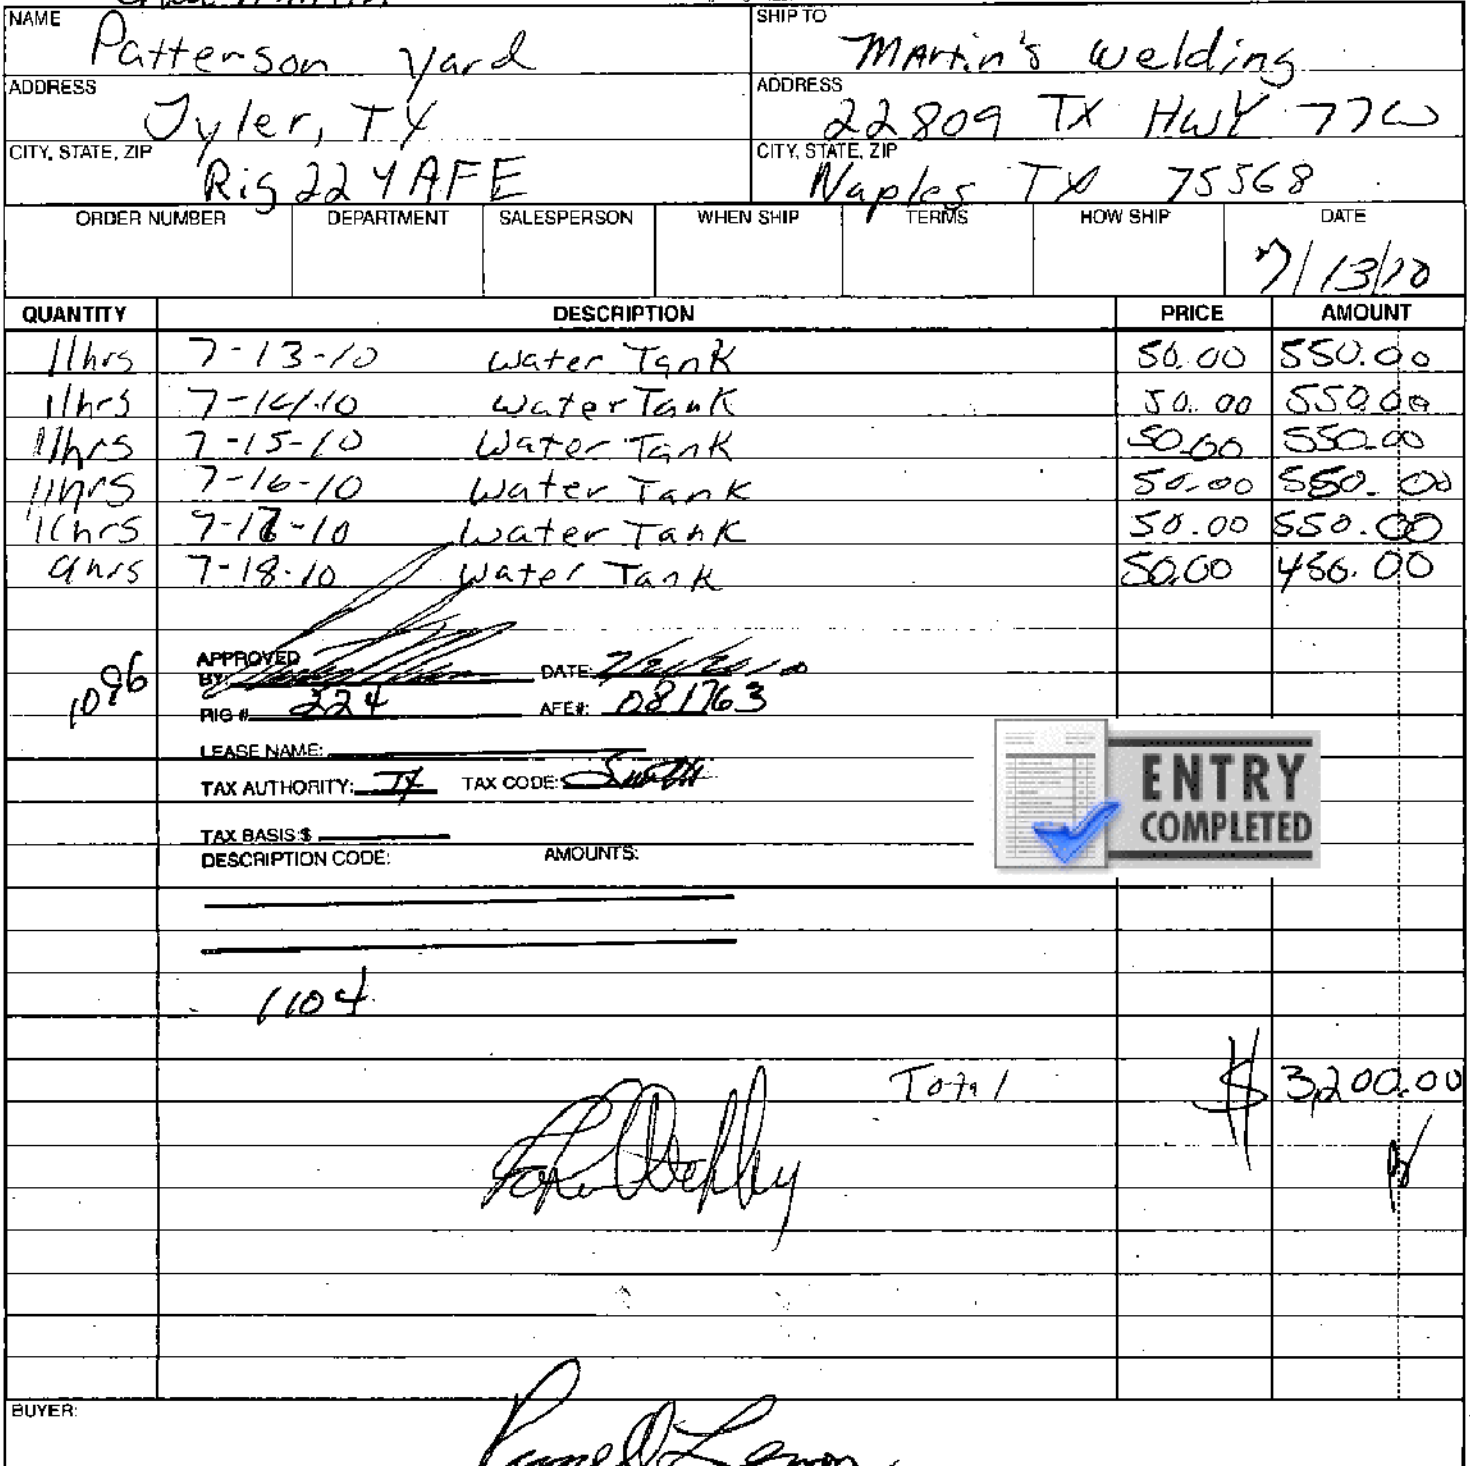 NAME Patterson Yard SHIP TO Martin's Welding
ADDRESS Tyler, TX ADDRESS 22809 TX HWY 77W
CITY, STATE, ZIP Rig 224 AFE CITY, STATE, ZIP Naples TX 75568
ORDER NUMBER DEPARTMENT SALESPERSON WHEN SHIP TERMS HOW SHIP DATE
7/13/10
QUANTITY DESCRIPTION PRICE AMOUNT
11hrs 7-13-10 Water Tank 50.00 550.00
11hrs 7-14-10 Water Tank 50.00 550.00
11hrs 7-15-10 Water Tank 50.00 550.00
11hrs 7-16-10 Water Tank 50.00 550.00
11hrs 7-17-10 Water Tank 50.00 550.00
9hrs 7-18-10 Water Tank 50.00 450.00
APPROVED
BY: DATE:
1096
RIG #. 224 AFE#: 081763
LEASE NAME:
TAX AUTHORITY: TX TAX CODE:
TAX BASIS $
DESCRIPTION CODE: AMOUNTS:
ENTRY
COMPLETED
1104
Total $ 3,200.00
BUYER: